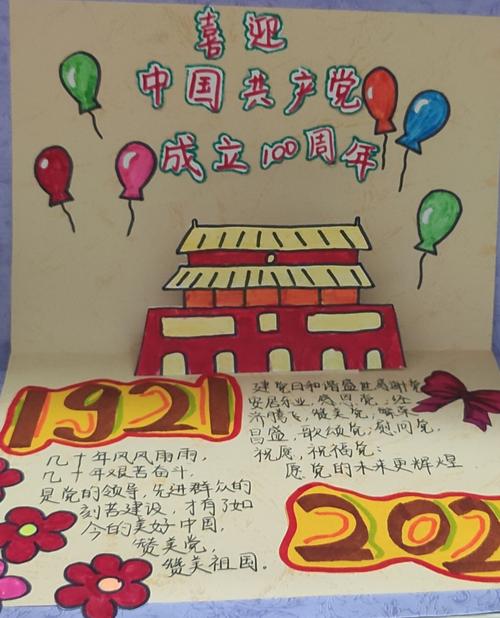 喜迎
中国共产党
成立100周年
1921
建党日和谐盛世感谢党
安居乐业,感恩党;经
济腾飞,赞美党,繁荣
昌盛,歌颂党;慰问党,
祝愿,祝福党;
愿党的未来更辉煌
几十年风风雨雨,
几十年艰苦奋斗,
是党的领导,先进群众的
刻苦建设,才有了如
今的美好中国,
赞美党,
赞美祖国。
202